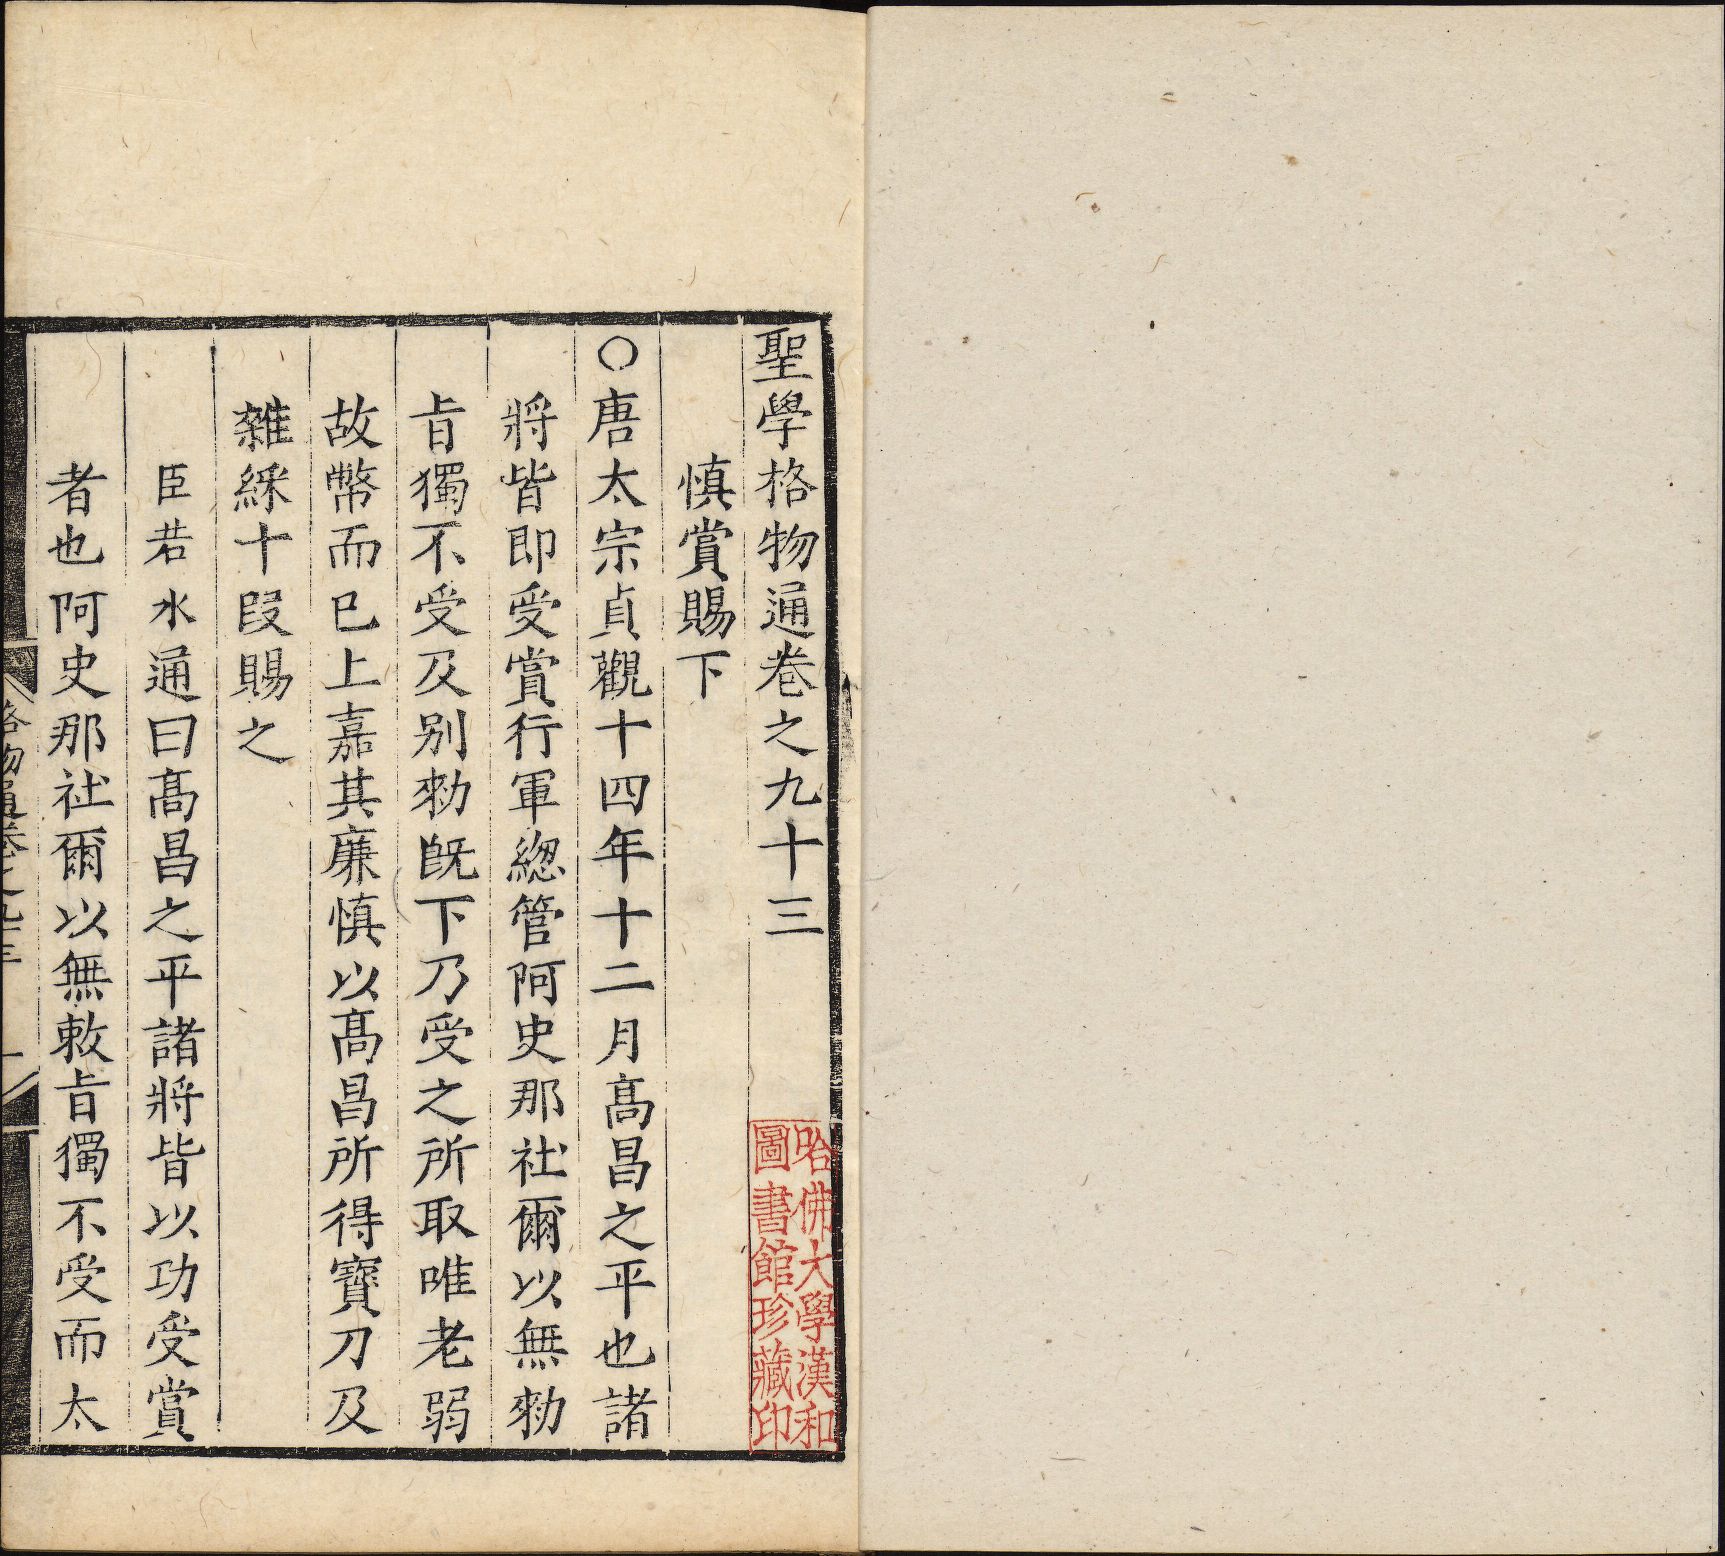 聖學格物通卷之九十三
慎賞賜下
○唐太宗貞觀十四年十二月髙昌之平也諸
將皆即受賞行軍總管阿史那社爾以無勑
㫖獨不受及别勑既下乃受之所取唯老弱
故幣而已上嘉其廉慎以髙昌所得寳刀及
雜綵十段賜之
臣若水通曰髙昌之平諸將皆以功受賞
者也阿史那社爾以無敕㫖獨不受而太
格物通卷之九十三
一
哈佛大學漢和
圖書館珍藏印